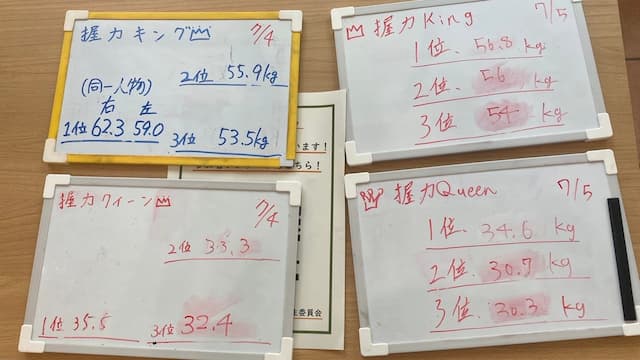 握力キング 7/4
2位 55.9kg
(同一人物)
右 左
1位 62.3 59.0
3位 53.5kg
握力King 7/5
1位. 56.8 kg
2位. 56 kg
3位 54 kg
握力クイーン 7/4
2位 33.3
1位 35.5
3位 32.4
握力Queen 7/5
1位. 34.6 kg
2位. 30.7 kg
3位. 30.3 kg
います!
ちら!
委員会